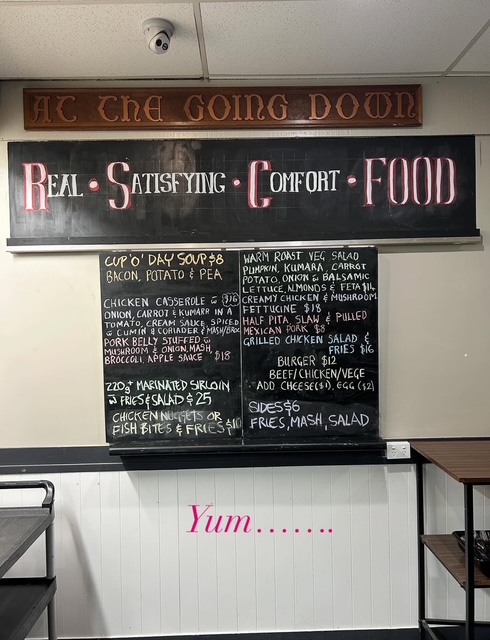 AT THE GOING DOWN
REAL • SATISFYING • COMFORT • FOOD
CUP 'O' DAY SOUP $8
BACON, POTATO & PEA
CHICKEN CASSEROLE w $16
ONION, CARROT & KUMARA IN A
TOMATO, CREAM SAUCE, SPICED
w CUMIN & CORIANDER & MASH/BROC
PORK BELLY STUFFED w
MUSHROOM & ONION, MASH,
BROCCOLI, APPLE SAUCE $18
220g MARINATED SIRLOIN
w FRIES & SALAD & 25
CHICKEN NUGGETS OR
FISH BITES & FRIES $10
WARM ROAST VEG SALAD
PUMPKIN, KUMARA, CARROT
POTATO, ONION w BALSAMIC
LETTUCE, ALMONDS & FETA $14
CREAMY CHICKEN & MUSHROOM
FETTUCINE $18
HALF PITA, SLAW & PULLED
MEXICAN PORK $8
GRILLED CHICKEN SALAD &
FRIES $16
BURGER $12
BEEF/CHICKEN/VEGE
ADD CHEESE($1), EGG ($2)
SIDES $6
FRIES, MASH, SALAD
Yum.......